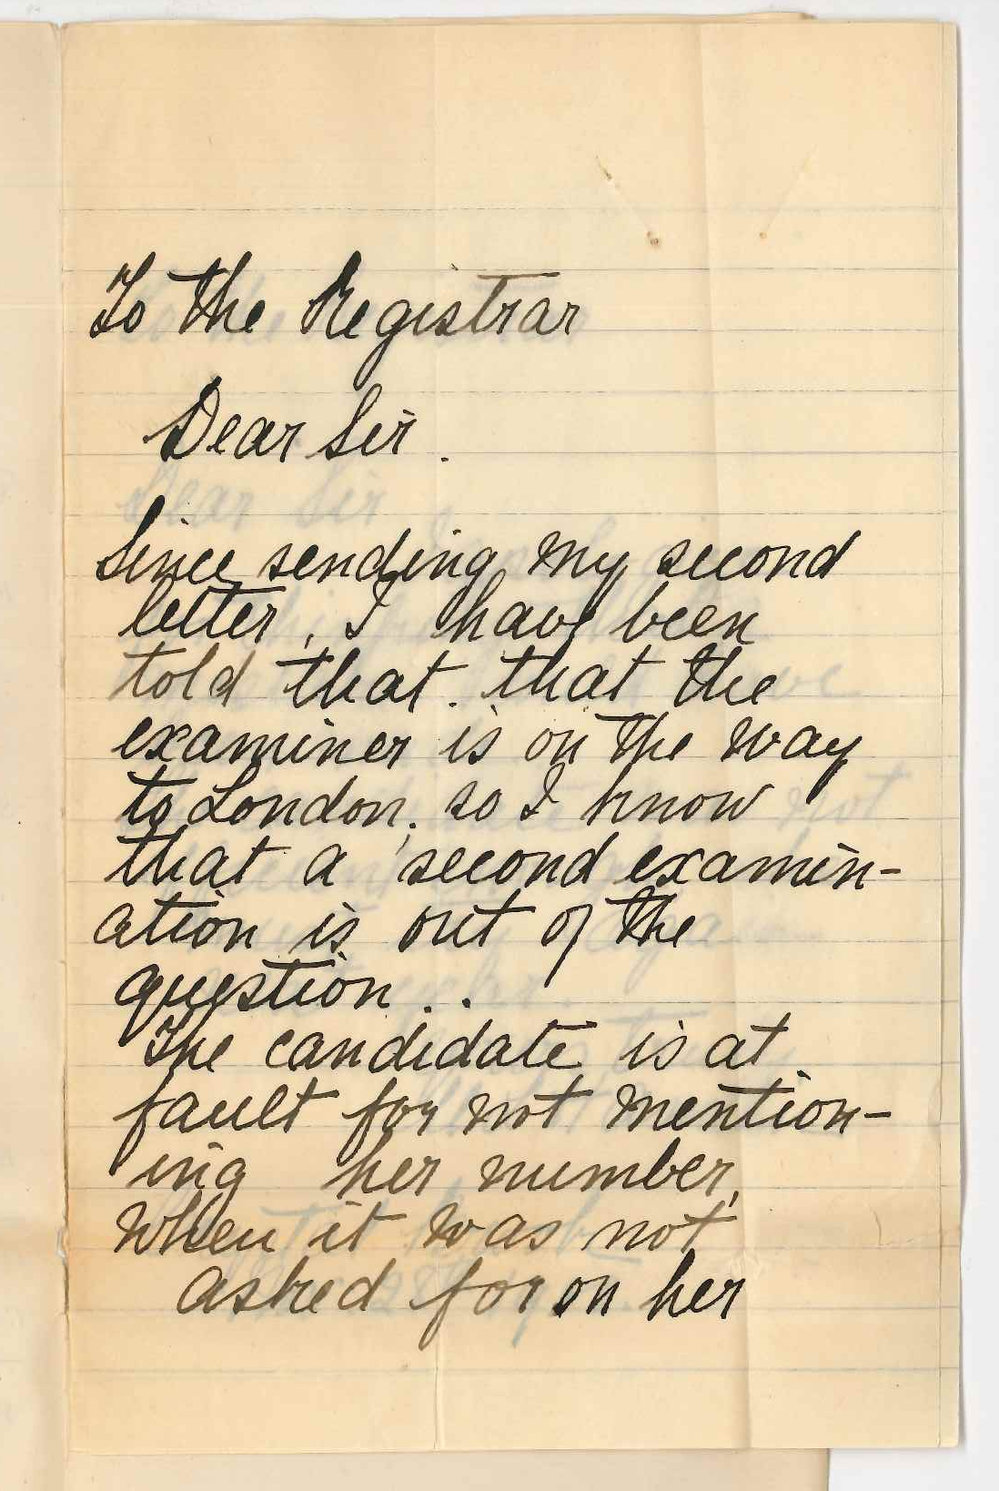 To the Registrar
Dear Sir.
Since sending my second
letter, I have been
told that. that the
examiner is on the way
to London, so I know
that a second examin-
ation is out of the
question..
The candidate is at
fault for not mention-
ing her number,
when it was not
asked for on her